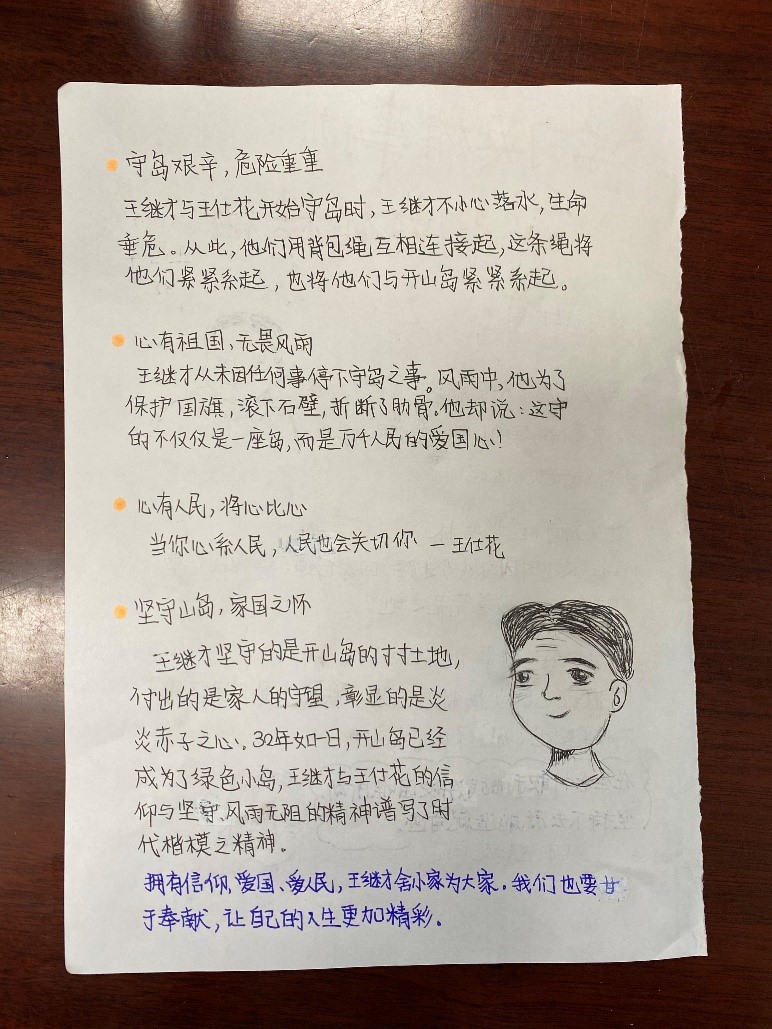 守岛艰辛，危险重重
王继才与王仕花开始守岛时，王继才不小心落水，生命
垂危。从此，他们用背包绳互相连接起，这条绳将
他们紧紧系起，也将他们与开山岛紧紧系起。
心有祖国、无畏风雨
王继才从未因任何事停下守岛之事。风雨中，他为了
保护国旗，滚下石壁，折断了肋骨。他却说：这守
的不仅仅是一座岛，而是万千人民的爱国心！
心有人民，将心比心
当你心系人民，人民也会关切你 — 王仕花
坚守山岛，家国之怀
王继才坚守的是开山岛的寸寸土地，
付出的是家人的守望，彰显的是炎
炎赤子之心。32年如一日，开山岛已经
成为了绿色小岛，王继才与王仕花的信
仰与坚守、风雨无阻的精神谱写了时
代楷模之精神。
拥有信仰、爱国、爱人民，王继才舍小家为大家。我们也要甘
于奉献，让自己的人生更加精彩。